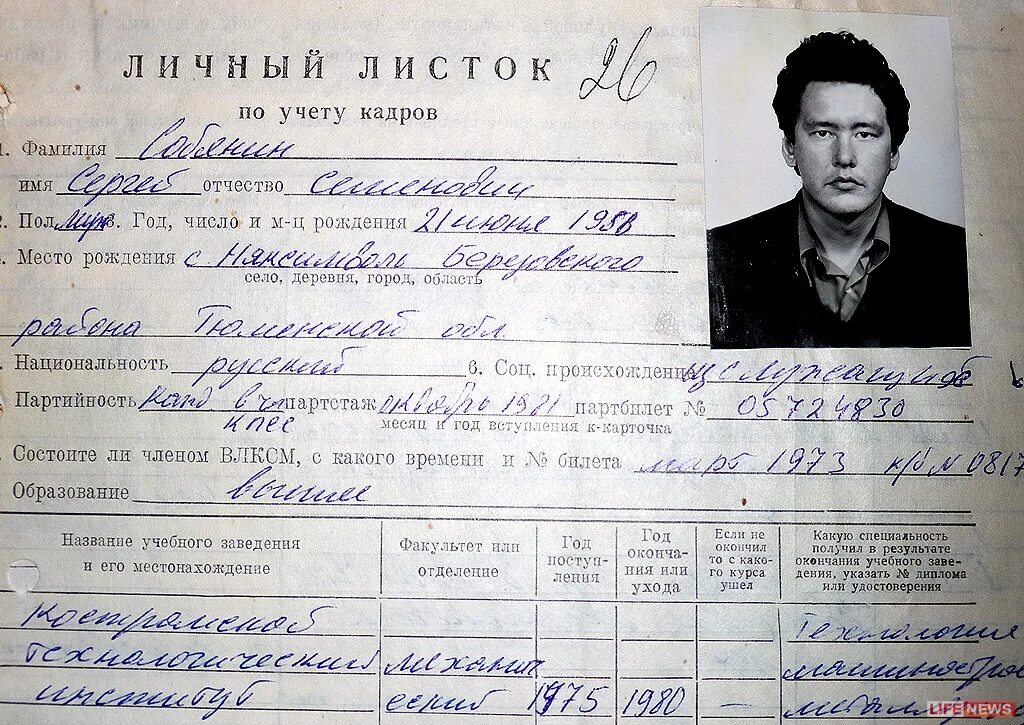 ЛИЧНЫЙ ЛИСТОК 26
по учету кадров
1. Фамилия Собянин
имя Сергей отчество Семенович
2. Пол муж 3. Год, число и м-ц рождения 21 июня 1958
4. Место рождения с Няксимволь Березовского
село, деревня, город, область
района Тюменской обл.
. Национальность русский 6. Соц. происхождение из служащих
Партийность канд в чл партстаж 1981 партбилет № 05724830
КПСС месяц и год вступления к-карточка
Состоите ли членом ВЛКСМ, с какого времени и № билета март 1973 к/б № 0817
Образование высшее
Название учебного заведения и его местонахождение
Факультет или отделение
Год поступ-ления
Год оконча-ния или ухода
Если не окончил то с како-го курса ушел
Какую специальность получил в результате окончания учебного заве-дения, указать № диплома или удостоверения
Костромской Технология
технологический механи машиностро
институт ческий 1975 1980 —
LIFE NEWS